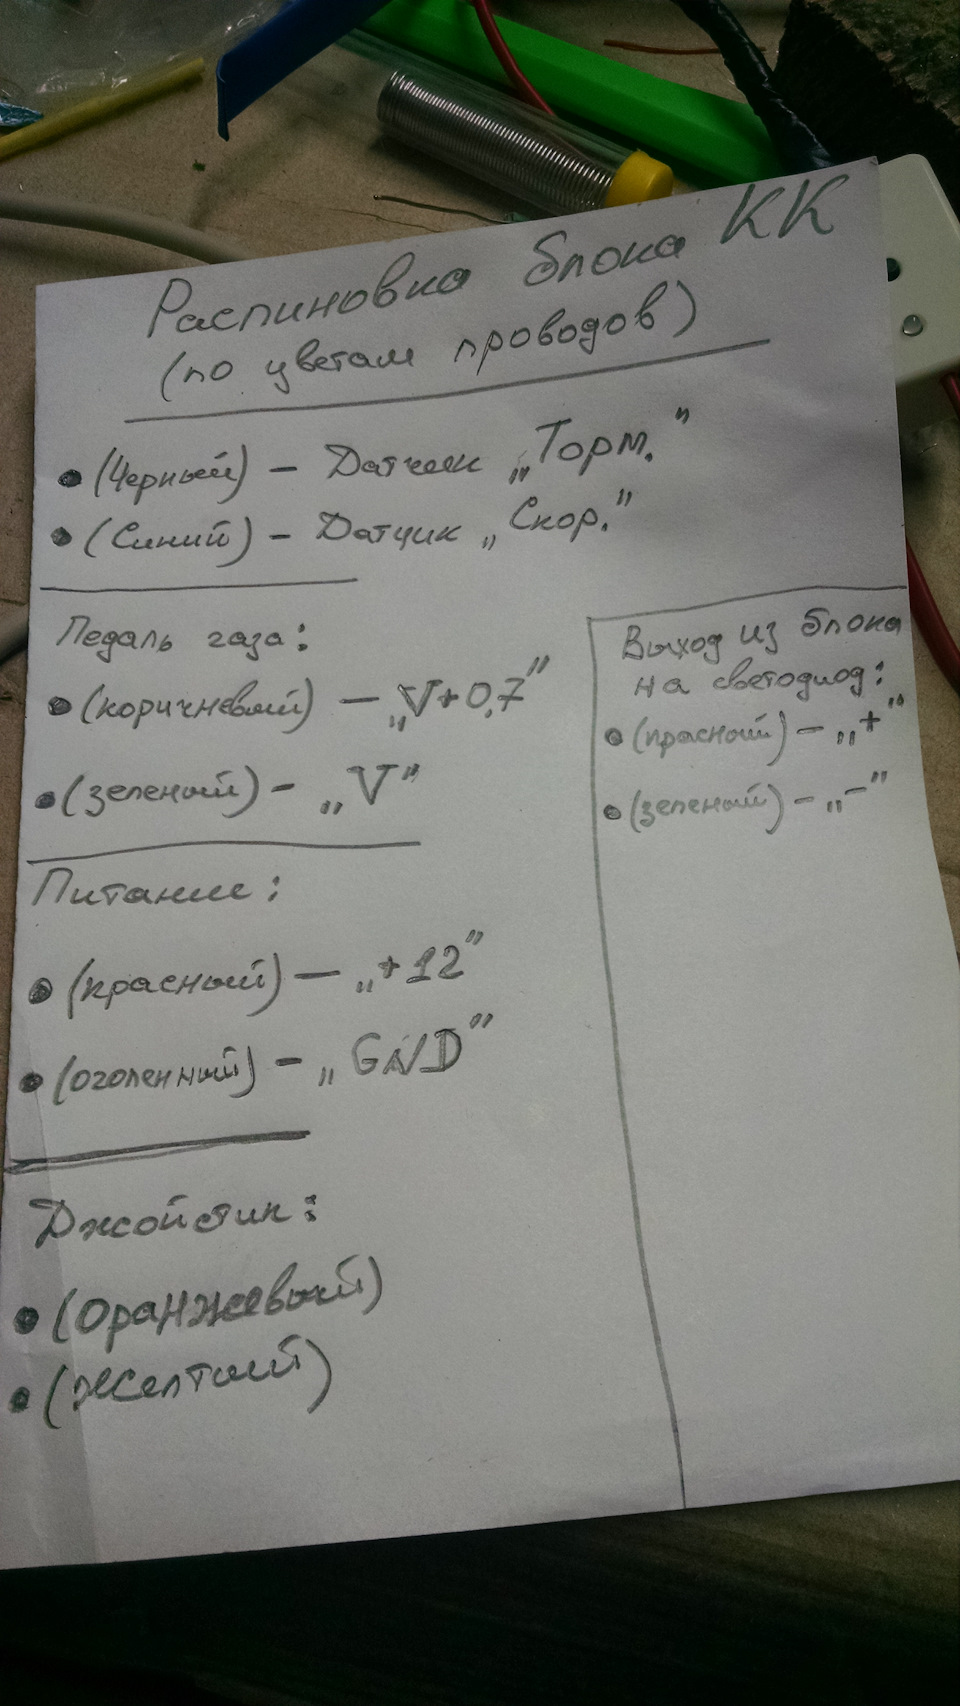 Распиновка блока КК
(по цветам проводов)
• (Черный) – Датчик „Торм.”
• (Синий) – Датчик „Скор.”
Педаль газа:
• (коричневый) – „V+0,7”
• (зеленый) – „V”
Питание:
• (красный) – „+12”
• (оголенный) – „GND”
Джойстик:
• (Оранжевый)
• (Желтый)
Выход из блока
на светодиод:
• (красный) – „+”
• (зеленый) – „-”